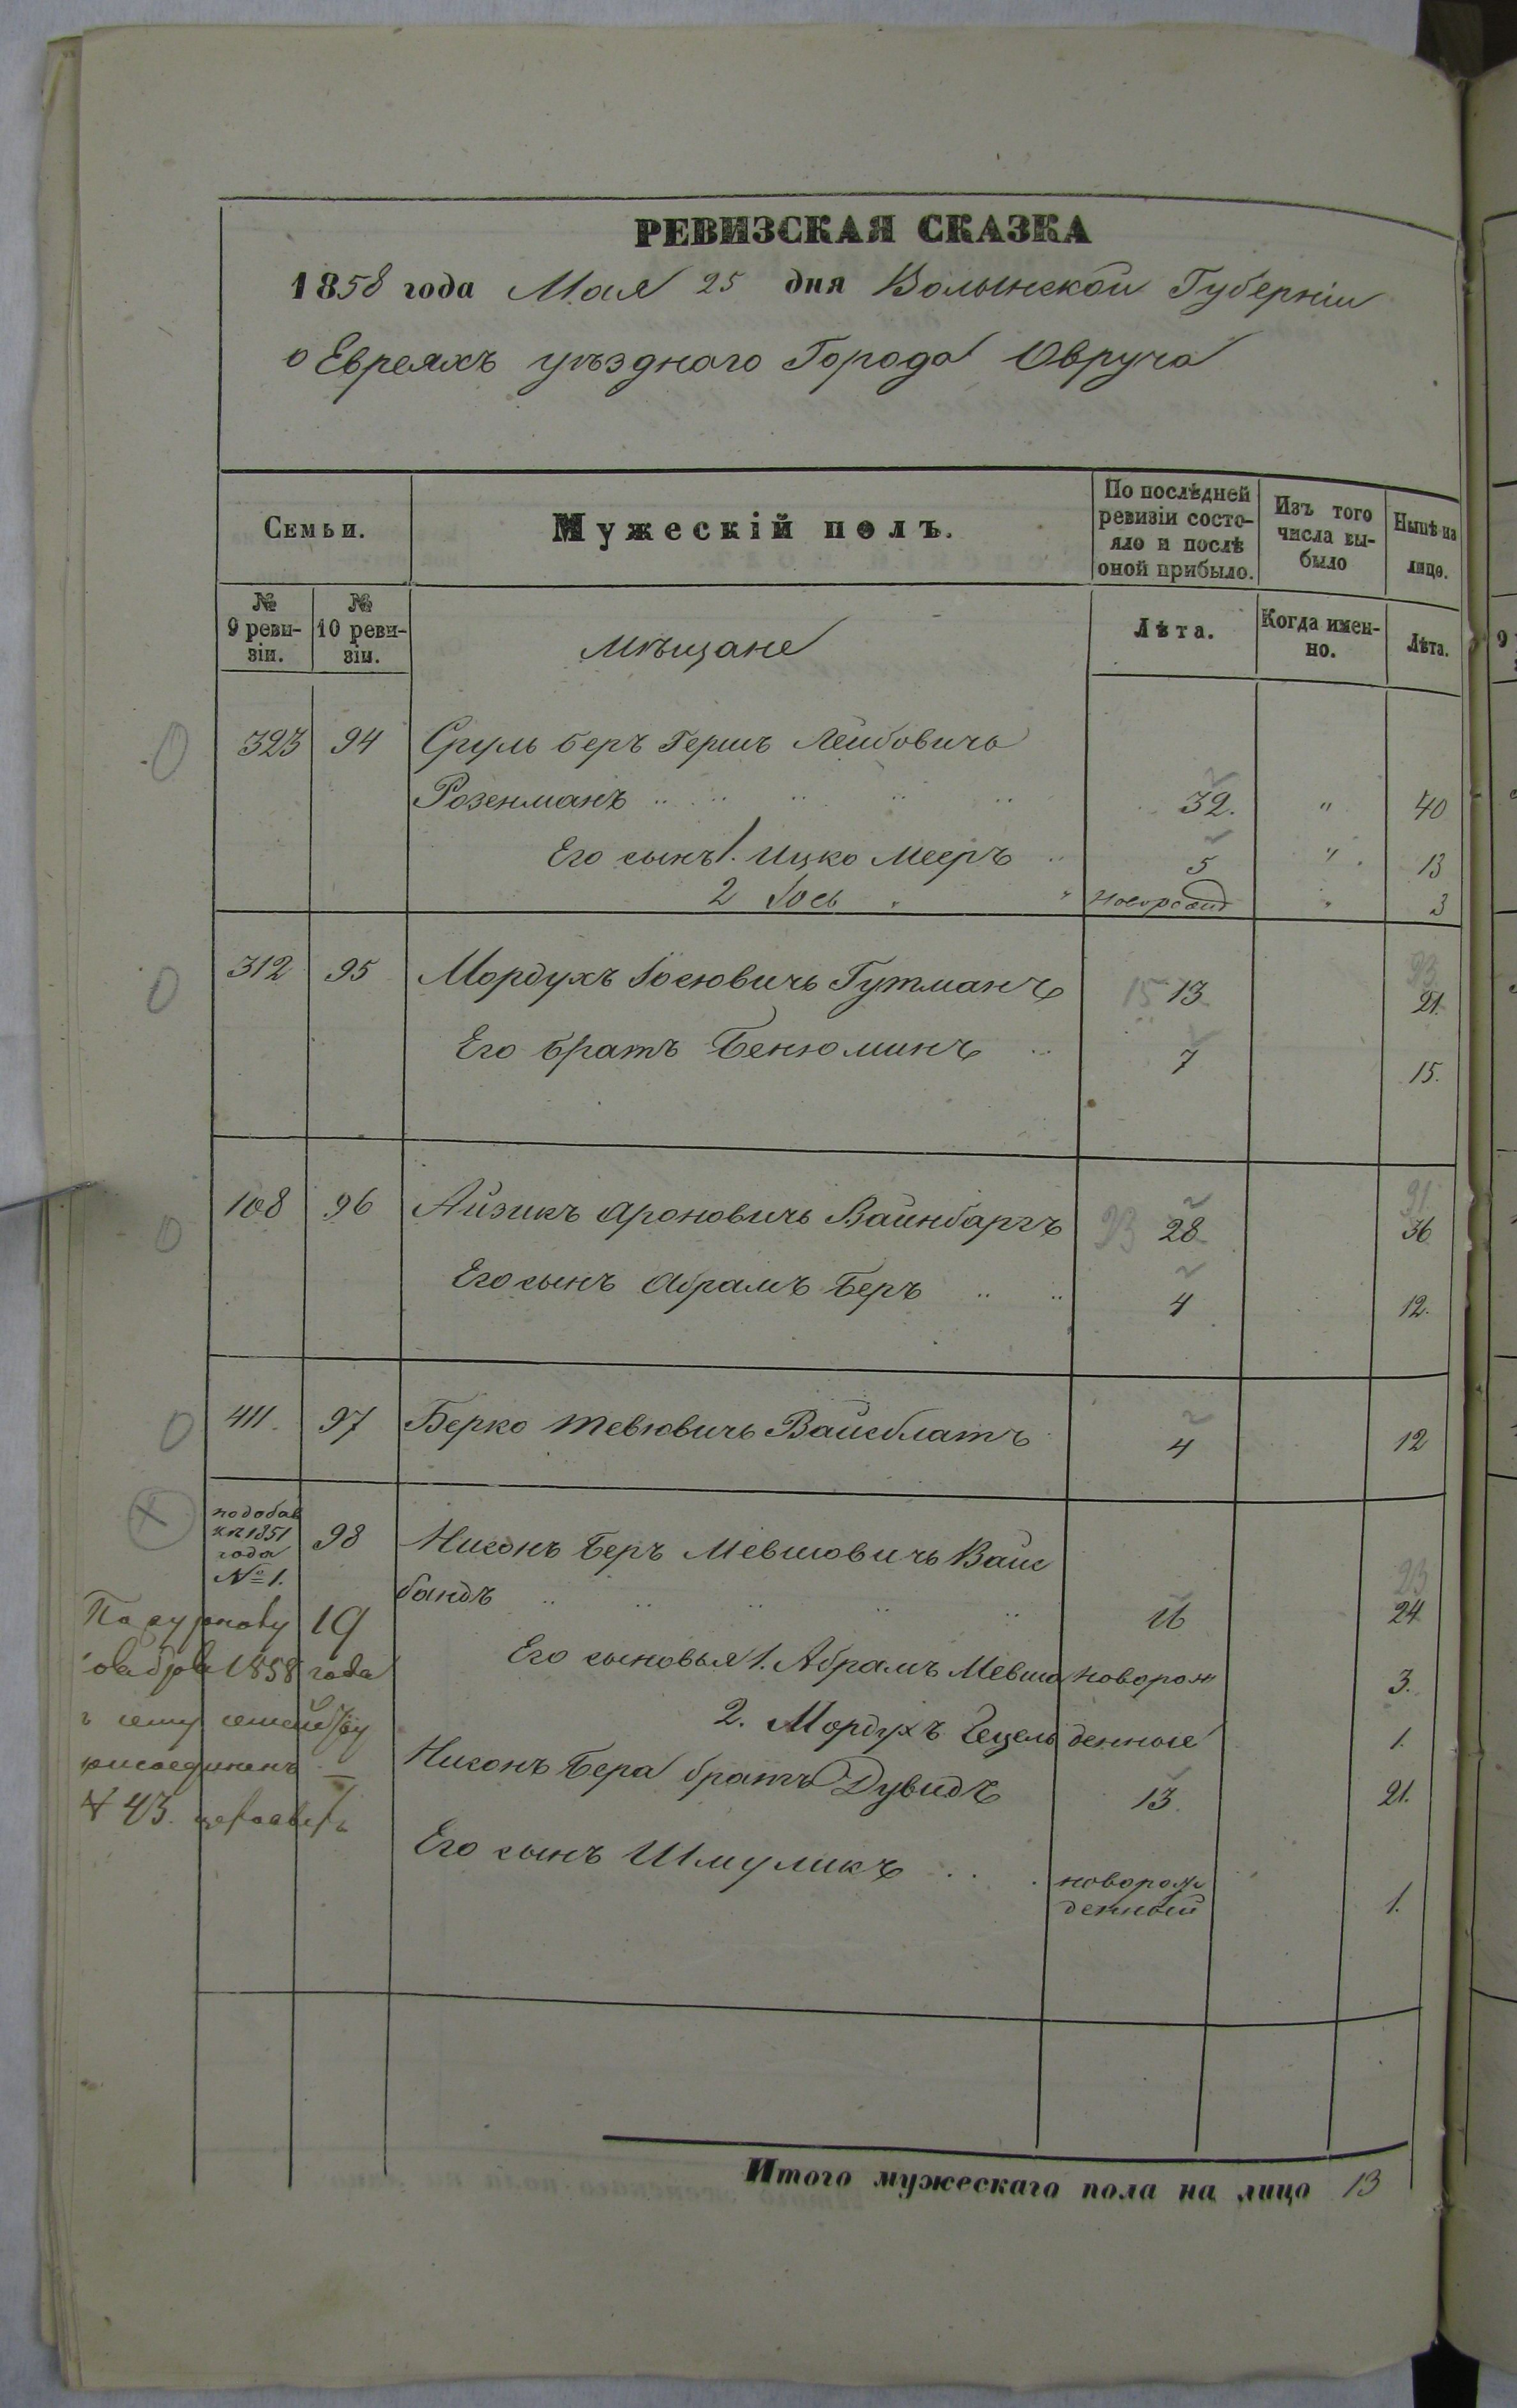 РЕВИЗСКАЯ СКАЗКА
1858 года Мая 25 дня Волынской Губерніи
о Евреяхъ уѣзднаго Города Овруча
Семьи. Мужескій полъ. По послѣдней ревизіи состояло и послѣ оной прибыло. Изъ того числа выбыло Нынѣ на лицо.
№ 9 ревизіи. № 10 ревизіи. Мѣщане Лѣта. Когда именно. Лѣта.
323 94 Сруль Беръ Гершъ Лейбовичъ
Розенманъ 32. " 40
Его сынъ 1. Ицко Мееръ 5 " 13
2 Іось " 3
312 95 Мордухъ Іосювичь Гутманъ 15 13 23 21.
Его братъ Бенюминъ 7 15.
108 96 Айзикъ Ароновичь Вайнбаргъ 23 28 31 36
Его сынъ Абрамъ Беръ 4 12.
411. 97 Берко Тевювичь Вайсблатъ 4 12
по добав
ки 1851
года
№ 1.
98 Нисонъ Беръ Мевшовичь Вайс
бандъ 16 23 24
Его сыновья 1. Абрамъ Мевша новорож 3.
2. Мордухъ Гецель денные 1.
Нисонъ Бера братъ Дувидъ 13 21.
Его сынъ Шмуликъ новорож
денный 1.
По 19
1858 года
сему семейству
присоединенъ
№ 43.
Итого мужескаго пола на лицо 13